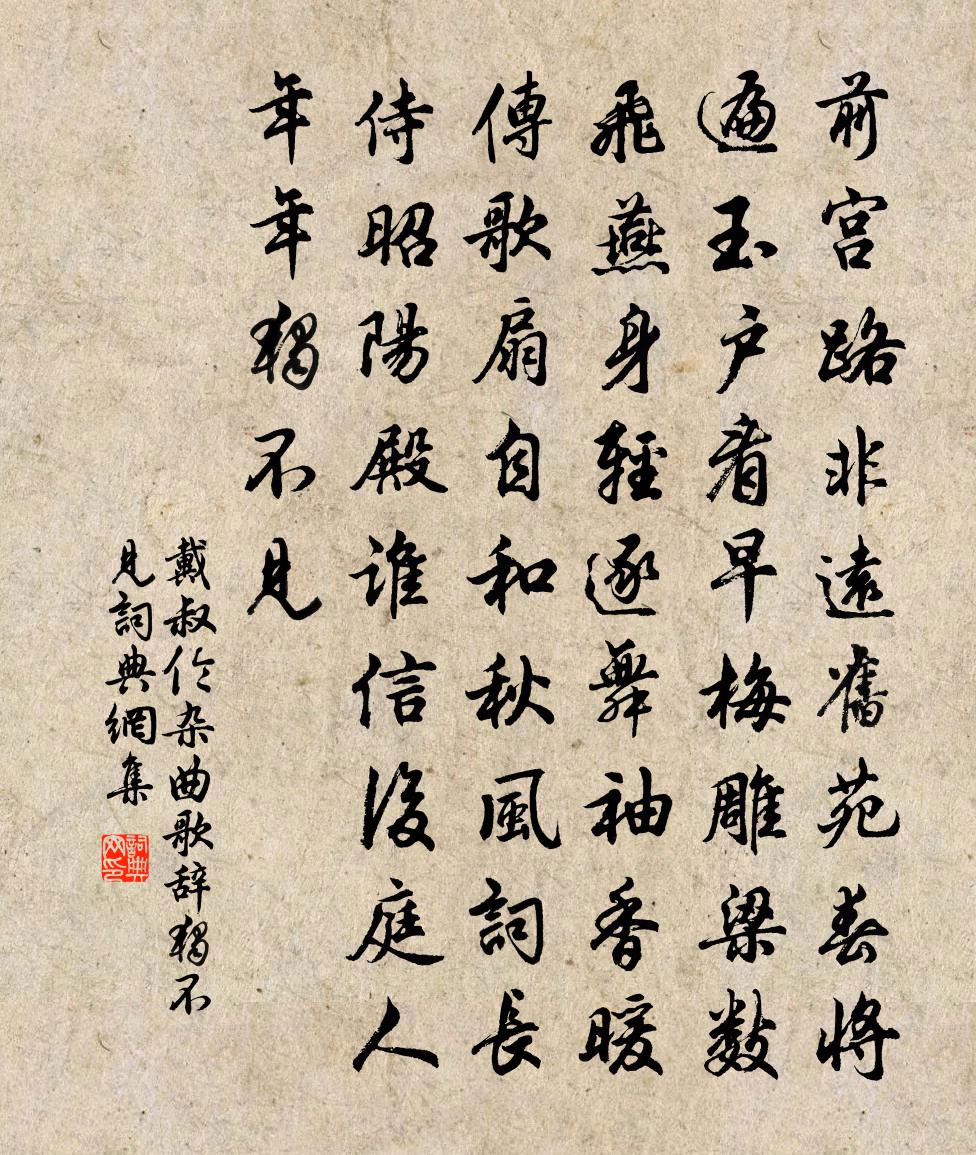 前宮路非遠舊苑春將
遍玉户看早梅雕梁数
飛燕身輕逐舞袖香暖
傳歌扇自和秋風詞長
侍昭陽殿誰信後庭人
年年獨不見
戴叔伦杂曲歌辞獨不
見詞典網集
詞典
网印